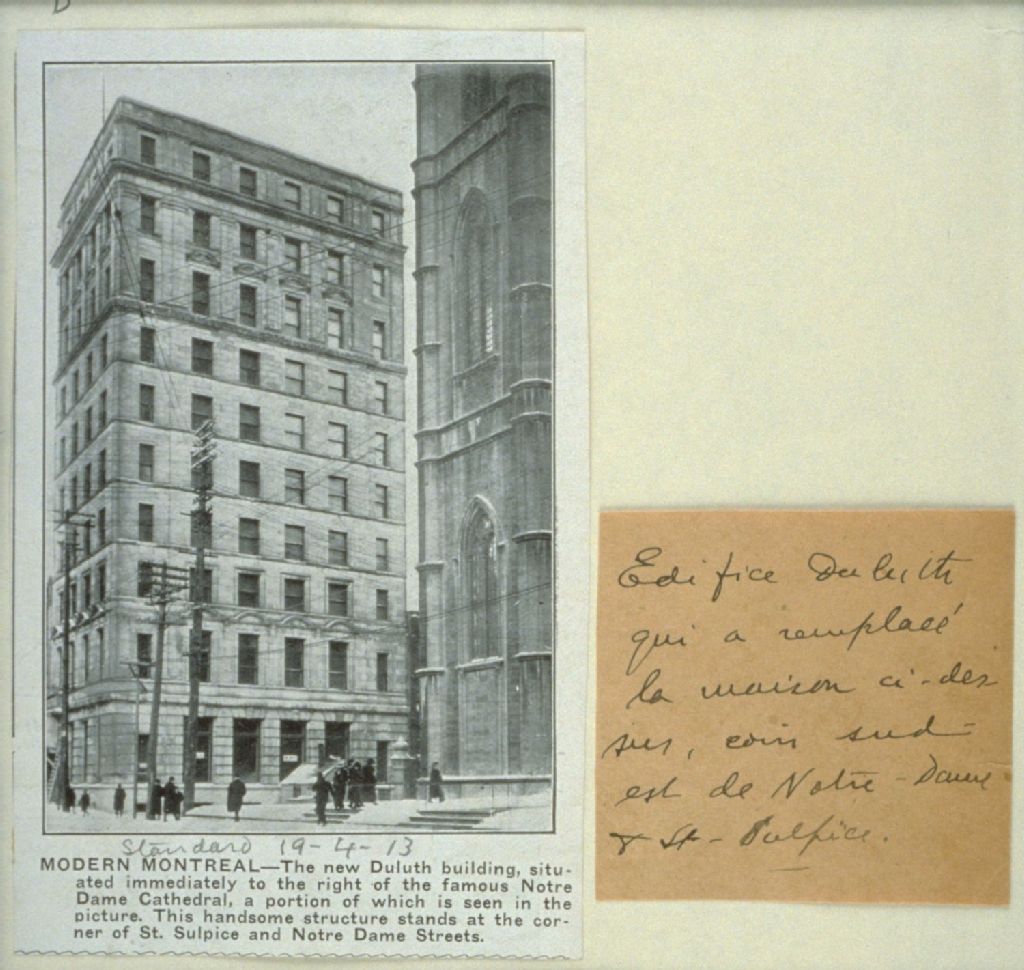 D
Standard 19-4-13
MODERN MONTREAL—The new Duluth building, situ-
ated immediately to the right of the famous Notre
Dame Cathedral, a portion of which is seen in the
picture. This handsome structure stands at the cor-
ner of St. Sulpice and Notre Dame Streets.
Edifice Duluth
qui a remplacé
la maison ci-des
sus, coin sud-
est de Notre-Dame
& St-Sulpice.